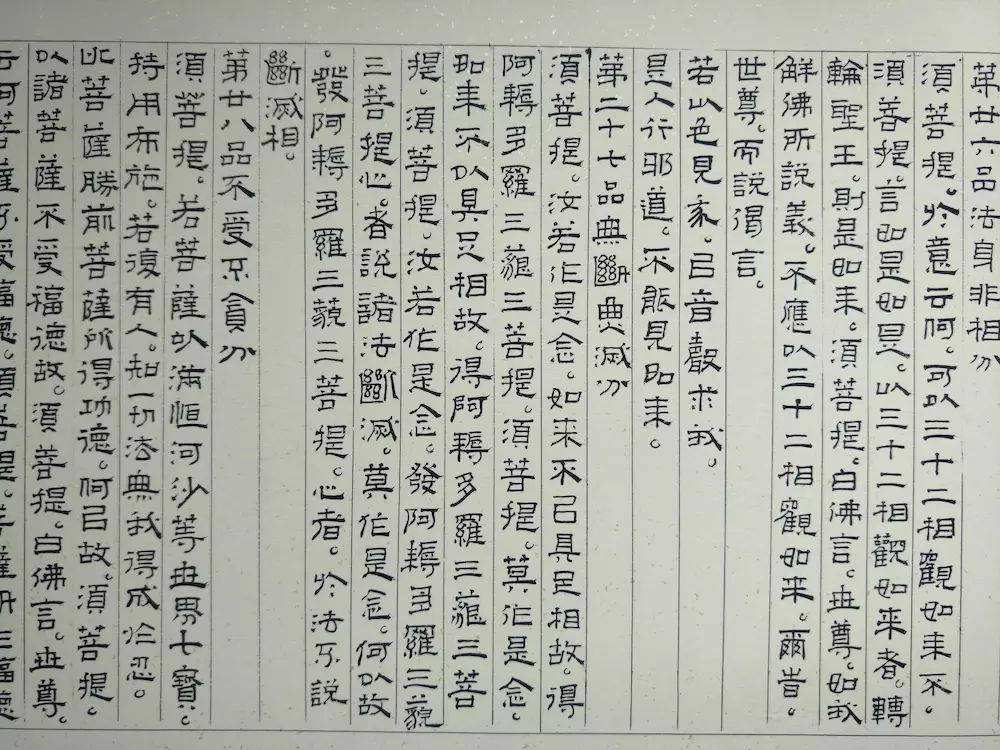 第廿六品法身非相分
須菩提。於意云何。可以三十二相觀如来不。
須菩提。言如是如是。以三十二相觀如来者。轉
輪聖王。則是如来。須菩提。白佛言。世尊。如我
解佛所說義。不應以三十二相觀如来。爾時。
世尊。而說偈言。
若以色見我。以音聲求我。
是人行邪道。不能見如来。
第二十七品無斷無滅分
須菩提。汝若作是念。如来不以具足相故。得
阿耨多羅三藐三菩提。須菩提。莫作是念。
如来不以具足相故。得阿耨多羅三藐三菩
提。須菩提。汝若作是念。發阿耨多羅三藐
三菩提心。者說諸法斷滅。莫作是念。何以故
。發阿耨多羅三藐三菩提。心者。於法不說
斷滅相。
第廿八品不受不貪分
須菩提。若菩薩以滿恒河沙等世界七寳。
持用布施。若復有人。知一切法無我得成於忍。
此菩薩勝前菩薩所得功德。何以故。須菩提。
以諸菩薩不受福德故。須菩提。白佛言。世尊。
云何菩薩不受福德。須菩提。菩薩所作福德